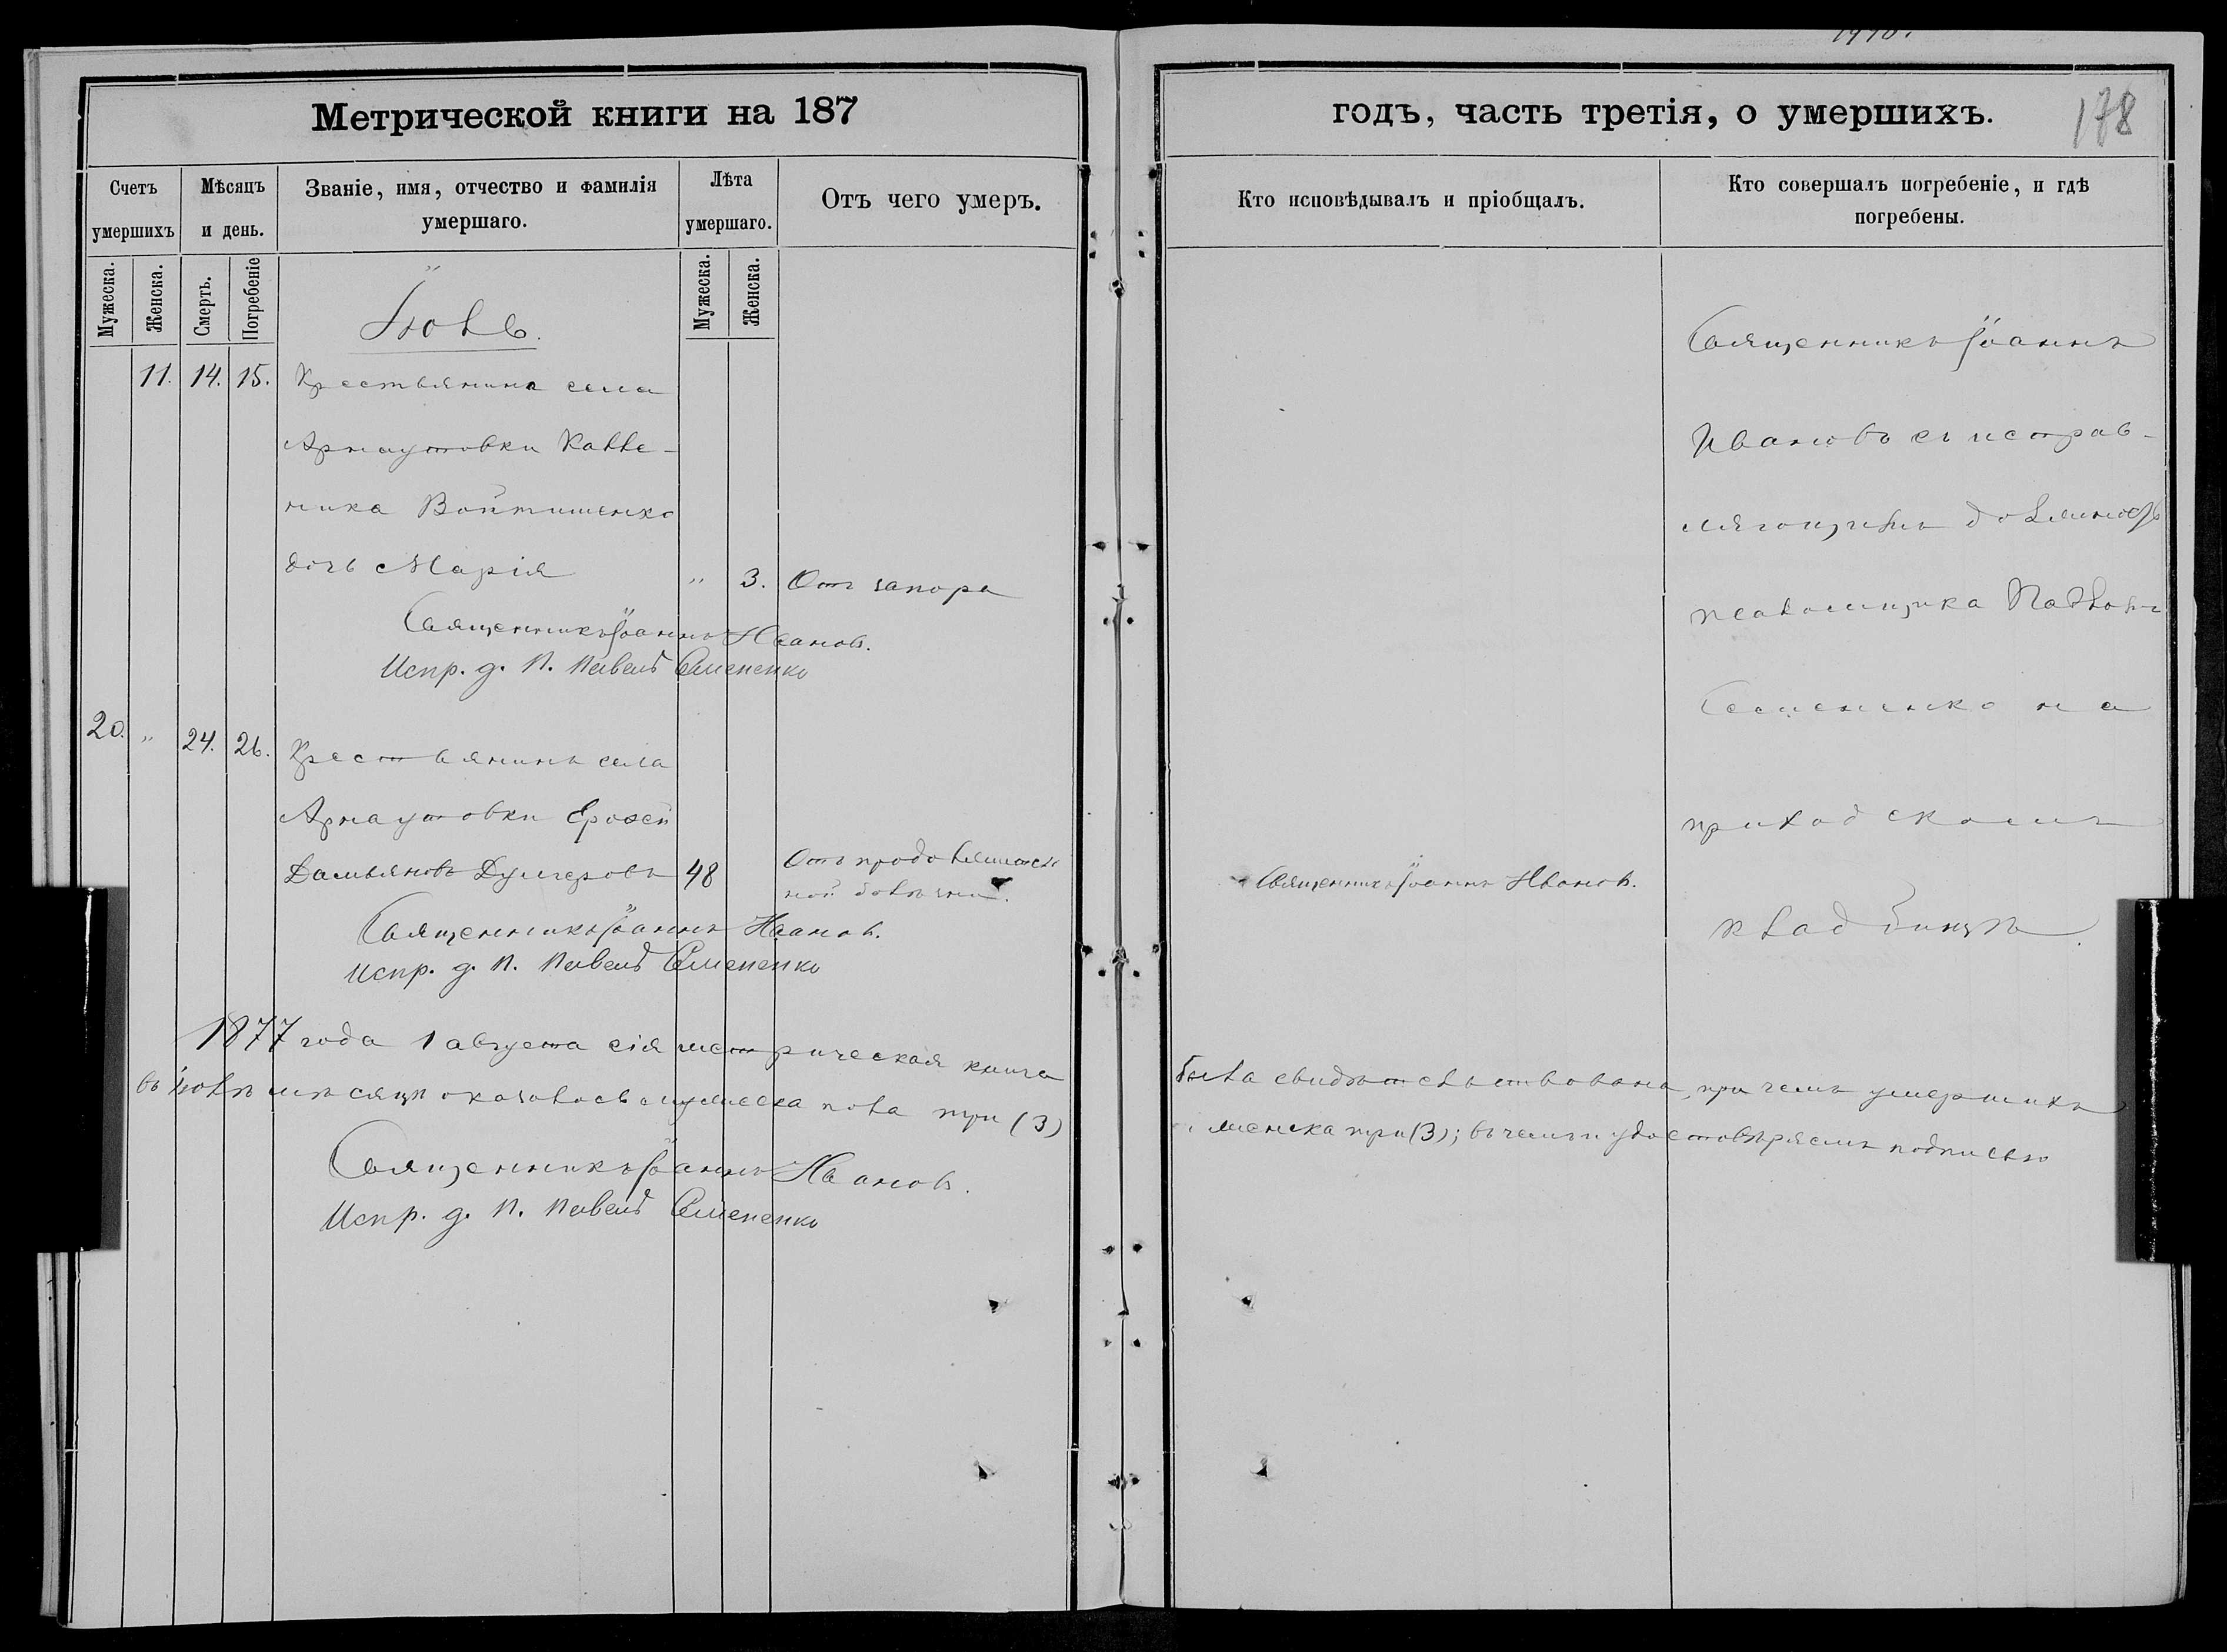 Метрической книги на 187
годъ, часть третія, о умершихъ.
178
Счетъ умершихъ
Мѣсяцъ и день.
Званіе, имя, отчество и фамилія умершаго.
Лѣта умершаго.
Отъ чего умеръ.
Кто исповѣдывалъ и пріобщалъ.
Кто совершалъ погребеніе, и гдѣ погребены.
Мужеска.
Женска.
Смерть.
Погребеніе
Мужеска.
Женска.
Іюль.
11. 14. 15. Крестьянина села
Арнаутовки
ника Войтишенко
дочь Марія " 3. Отъ запора
Священникъ Іоаннъ Иванов.
Испр. д. П. Павелъ Семененко
20. " 24. 26. Крестьянинъ села
Арнаутовки Ерофей
Дамьяновъ 48 Отъ продолжитель
ной болѣзни.
Священникъ Іоаннъ Иванов.
Священникъ Іоаннъ Иванов.
Испр. д. П. Павелъ Семененко
Священникъ Іоаннъ
Ивановъ съ исправ-
ляющимъ должность
псаломщика Павломъ
Семененко на
приходскомъ
кладбищѣ.
1877 года 1 августа сія метрическая книга была свидѣтельствована, при чемъ умершихъ
въ іюлѣ мѣсяцѣ оказалось мужеска пола три (3) женска три (3); въ чемъ и удостовѣряемъ подписью
Священникъ Іоаннъ Иванов.
Испр. д. П. Павелъ Семененко